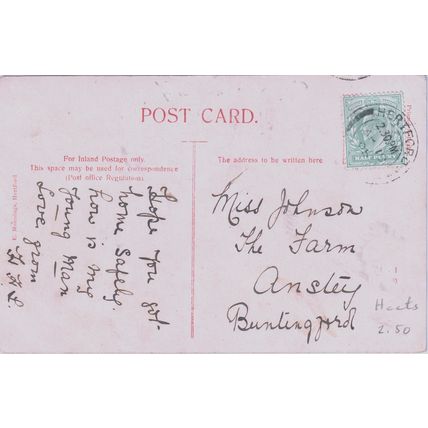 POST CARD.
For Inland Postage only.
This space may be used for correspondence
(Post office Regulation)
The address to be written here
Hope you got
home safely.
how is my
young man
Love from
Miss Johnson
The Farm
Anstey
Buntingford
Herts
2.50
HERTFORD
HALF PENNY